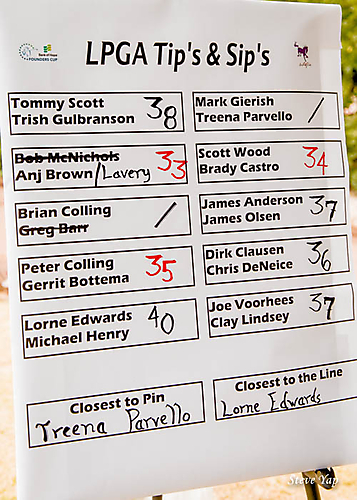 Bank of Hope
FOUNDERS CUP
LPGA Tip's & Sip's
Tommy Scott
Trish Gulbranson 38
Mark Gierish
Treena Parvello /
Bob McNichols
Anj Brown/Lavery 33
Scott Wood
Brady Castro 34
Brian Colling
Greg Barr /
James Anderson
James Olsen 37
Peter Colling
Gerrit Bottema 35
Dirk Clausen
Chris DeNeice 36
Lorne Edwards
Michael Henry 40
Joe Voorhees
Clay Lindsey 37
Closest to Pin
Treena Parvello
Closest to the Line
Lorne Edwards
Steve Yap